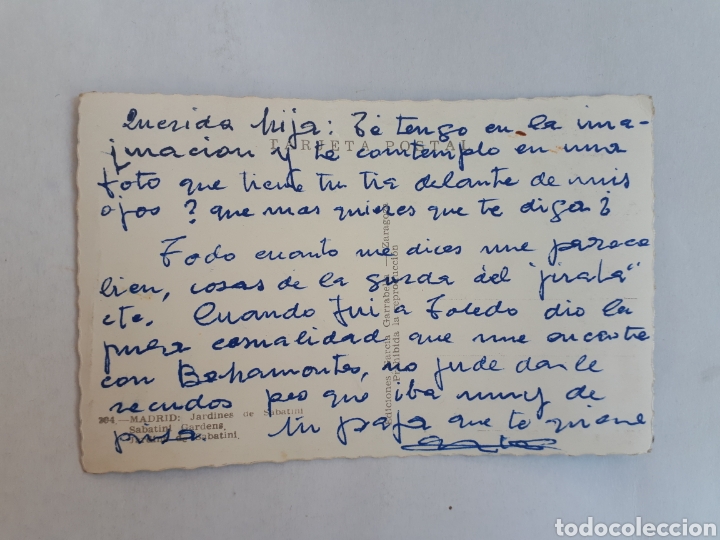 Querida hija: Te tengo en la ima-
TARJETA POSTAL
jinacion y te contemplo en una
foto que tiene tu tia delante de mis
ojos ? que mas quieres que te diga?
Todo cuanto me dices me parece
bien, cosas de la gurda del "pirata"
etc. Cuando fui a Toledo dio la
pura casualidad que me encontre
con Bahamontes, no pude darle
recudos peo que iba muy de
prisa. tu papa que te quiere
Ediciones García Garrabella Zaragoza
Prohibida la reproducción
304.—MADRID: Jardines de Sabatini
Sabatini Gardens.
Sabatini.
todocoleccion
todocoleccion.net